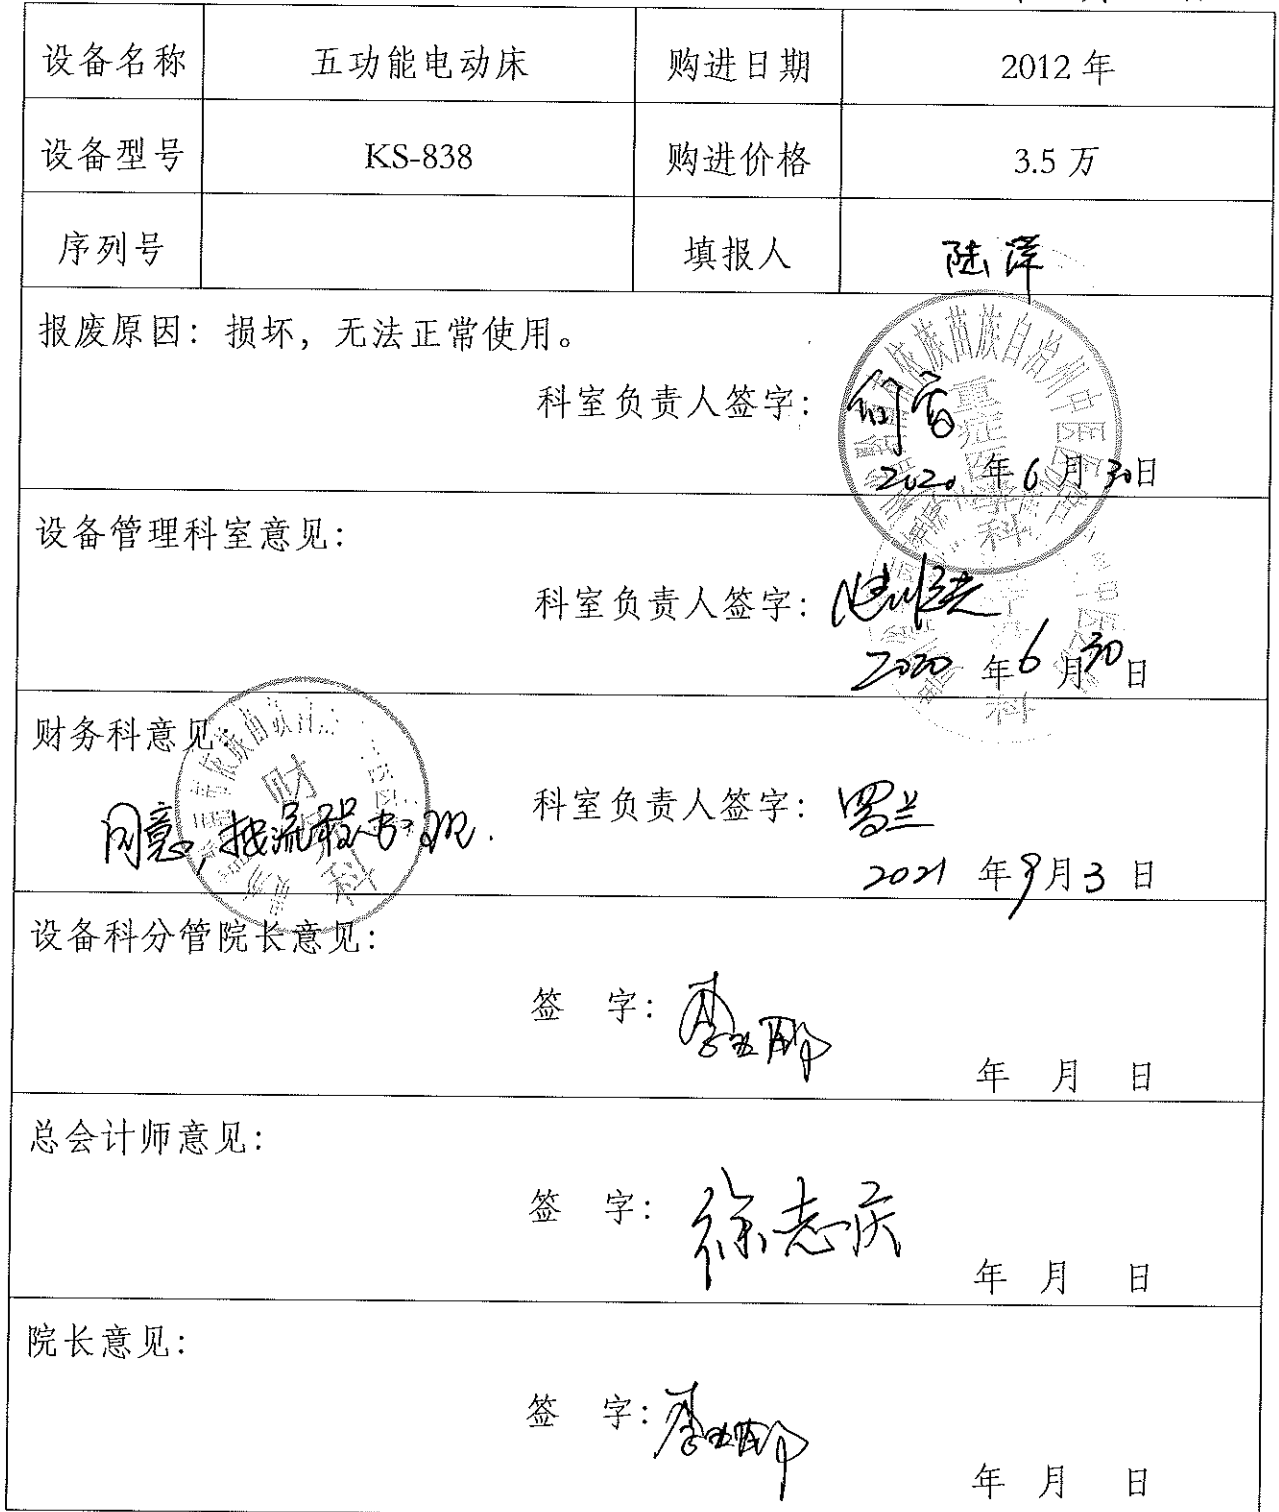 设备名称 五功能电动床 购进日期 2012年
设备型号 KS-838 购进价格 3.5万
序列号 填报人 陆萍
报废原因：损坏，无法正常使用。
科室负责人签字：
2020年6月30日
重症医学科
设备管理科室意见：
科室负责人签字：
2020年6月30日
财务科意见：
同意，按流程办理.
财务科
科室负责人签字：罗兰
2021年9月3日
设备科分管院长意见：
签 字：
年 月 日
总会计师意见：
签 字：徐志庆
年 月 日
院长意见：
签 字：
年 月 日